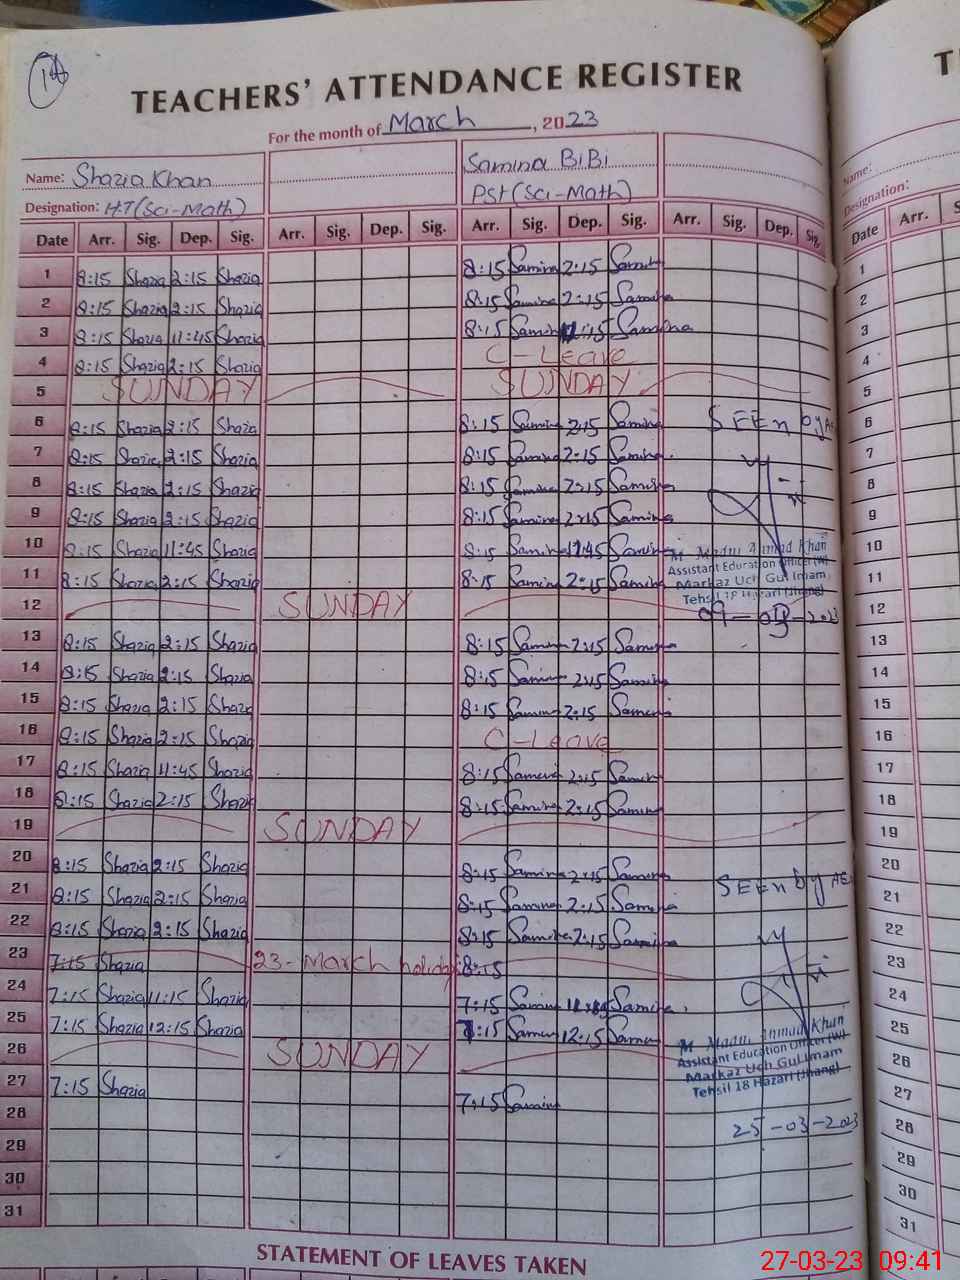 14
TEACHERS' ATTENDANCE REGISTER
For the month of March, 2023
Name: Shazia Khan Samina BiBi
Designation: H.T (Sci-Math) PST (Sci-Math)
Date Arr. Sig. Dep. Sig. Arr. Sig. Dep. Sig. Arr. Sig. Dep. Sig. Arr. Sig. Dep. Sig.
1 8:15 Shazia 2:15 Shazia 8:15 Samina 2:15 Samina
2 8:15 Shazia 2:15 Shazia 8:15 Samina 2:15 Samina
3 8:15 Shazia 11:45 Shazia 8:15 Samina 11:45 Samina
4 8:15 Shazia 2:15 Shazia C-Leave
5 SUNDAY SUNDAY
6 8:15 Shazia 2:15 Shazia 8:15 Samina 2:15 Samina SEEN by AE
7 8:15 Shazia 2:15 Shazia 8:15 Samina 2:15 Samina
8 8:15 Shazia 2:15 Shazia 8:15 Samina 2:15 Samina
9 8:15 Shazia 2:15 Shazia 8:15 Samina 2:15 Samina
10 8:15 Shazia 11:45 Shazia 8:15 Samina 11:45 Samina
11 8:15 Shazia 2:15 Shazia 8:15 Samina 2:15 Samina
Khan
Assistant Education Officer (W)
Markaz Uch Gul Imam
Tehsil 18 Hazari (Jhang)
09-03-2023
12 SUNDAY
13 8:15 Shazia 2:15 Shazia 8:15 Samina 2:15 Samina
14 8:15 Shazia 2:15 Shazia 8:15 Samina 2:15 Samina
15 8:15 Shazia 2:15 Shazia 8:15 Samina 2:15 Samina
16 8:15 Shazia 2:15 Shazia C-Leave
17 8:15 Shazia 11:45 Shazia 8:15 Samina 2:15 Samina
18 8:15 Shazia 2:15 Shazia 8:15 Samina 2:15 Samina
19 SUNDAY
20 8:15 Shazia 2:15 Shazia 8:15 Samina 2:15 Samina SEEN by AE
21 8:15 Shazia 2:15 Shazia 8:15 Samina 2:15 Samina
22 8:15 Shazia 2:15 Shazia 8:15 Samina 2:15 Samina
23 7:15 Shazia 23-March holiday 8:15
24 7:15 Shazia 11:15 Shazia 7:15 Samina Samina
25 7:15 Shazia 12:15 Shazia 7:15 Samina 12:15 Samina
Khan
Assistant Education Officer (W)
Markaz Uch Gul Imam
Tehsil 18 Hazari (Jhang)
26 SUNDAY
27 7:15 Shazia 7:15 Samina
28 25-03-2023
29
30
31
STATEMENT OF LEAVES TAKEN
T
Name:
Designation:
Date Arr. S
1
2
3
4
5
6
7
8
9
10
11
12
13
14
15
16
17
18
19
20
21
22
23
24
25
26
27
28
29
30
31
27-03-23 09:41